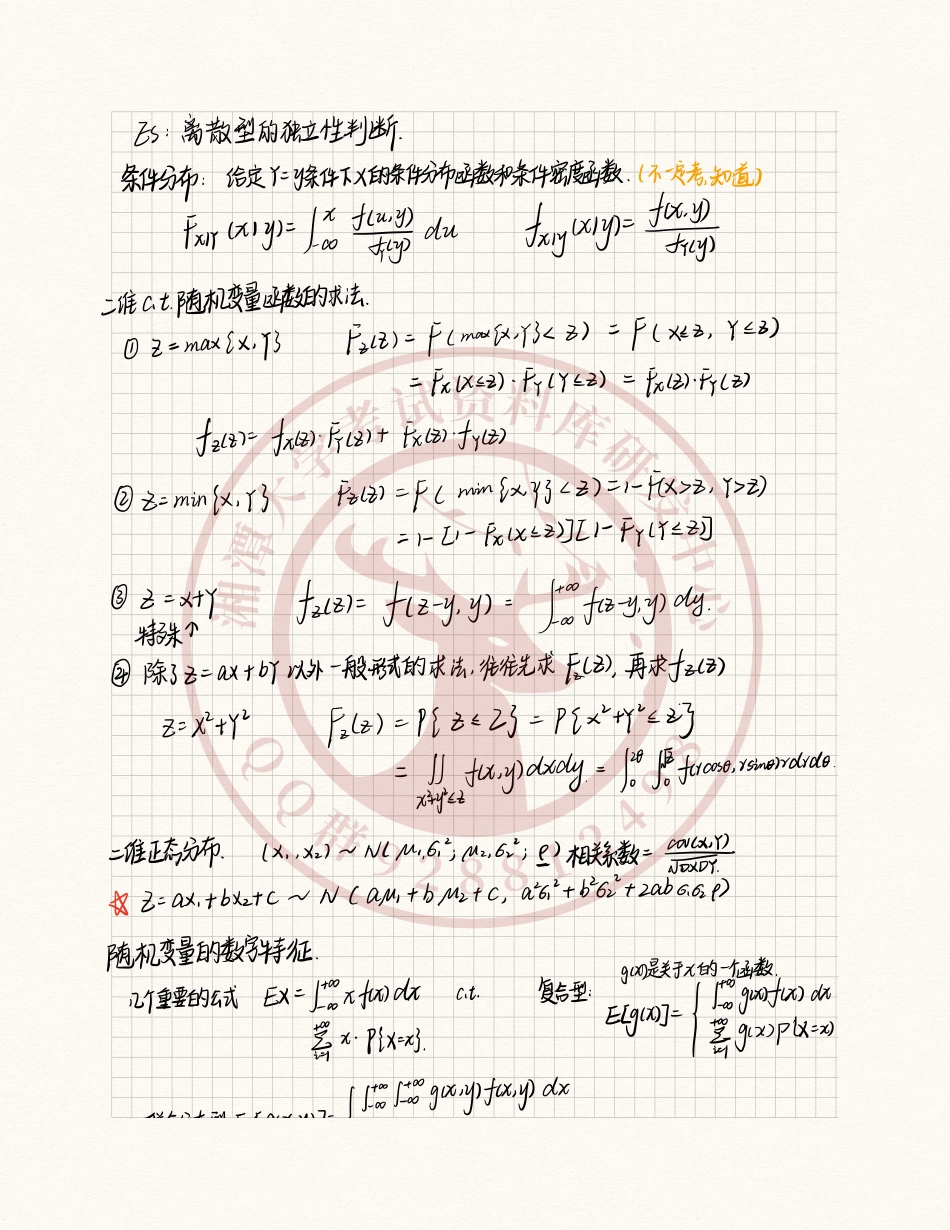 Es: 离散型的独立性判断.
条件分布: 给定Y=y条件下X的条件分布函数和条件密度函数.(不一定考,知道)
F_{X|Y}(x|y)=∫_{-∞}^{x} f(u,y)/f_Y(y) du  f_{X|Y}(x|y)= f(x,y)/f_Y(y)
二维c.t.随机变量函数的求法.
① Z=max{X,Y}  F_Z(z)=F(max{X,Y}<z) = F(X≤z, Y≤z)
=F_X(X≤z)·F_Y(Y≤z) = F_X(z)·F_Y(z)
f_Z(z)= f_X(z)·F_Y(z)+ F_X(z)·f_Y(z)
② Z=min{X,Y}  F_Z(z) =F( min{X,Y}<z)=1-F(X>z, Y>z)
=1-[1-F_X(X≤z)][1-F_Y(Y≤z)]
③ Z=X+Y  f_Z(z)= f(z-y,y) = ∫_{-∞}^{+∞} f(z-y,y) dy.
特殊↑
④ 除了Z=aX+bY以外一般形式的求法,往往先求F_Z(z),再求f_Z(z)
Z=X²+Y²  F_Z(z) = P{Z≤Z} = P{X²+Y²≤Z}
= ∬_{x²+y²≤z} f(x,y)dxdy = ∫_0^{2θ} ∫_0^{√z} f(rcosθ,rsinθ)rdrdθ.
二维正态分布. (X₁,X₂) ~ N(μ₁,σ₁²;μ₂,σ₂²;ρ) 相关系数= cov(X,Y)/√DXDY.
☆ Z=aX₁+bX₂+c ~ N(aμ₁+bμ₂+c, a²σ₁²+b²σ₂²+2abσ₁σ₂ρ)
随机变量的数字特征.
g(x)是关于x的一个函数.
几个重要的公式 EX=∫_{-∞}^{+∞} x f(x) dx  c.t.  复合型: E[g(x)]= { ∫_{-∞}^{+∞} g(x)f(x) dx
∑_{i=1}^{+∞} x·P{X=x}.  ∑_{i=1}^{+∞} g(x)P(X=x)
{ ∫_{-∞}^{+∞} ∫_{-∞}^{+∞} g(x,y)f(x,y) dx
湘潭大学考试资料库研发中心
QQ群928812498